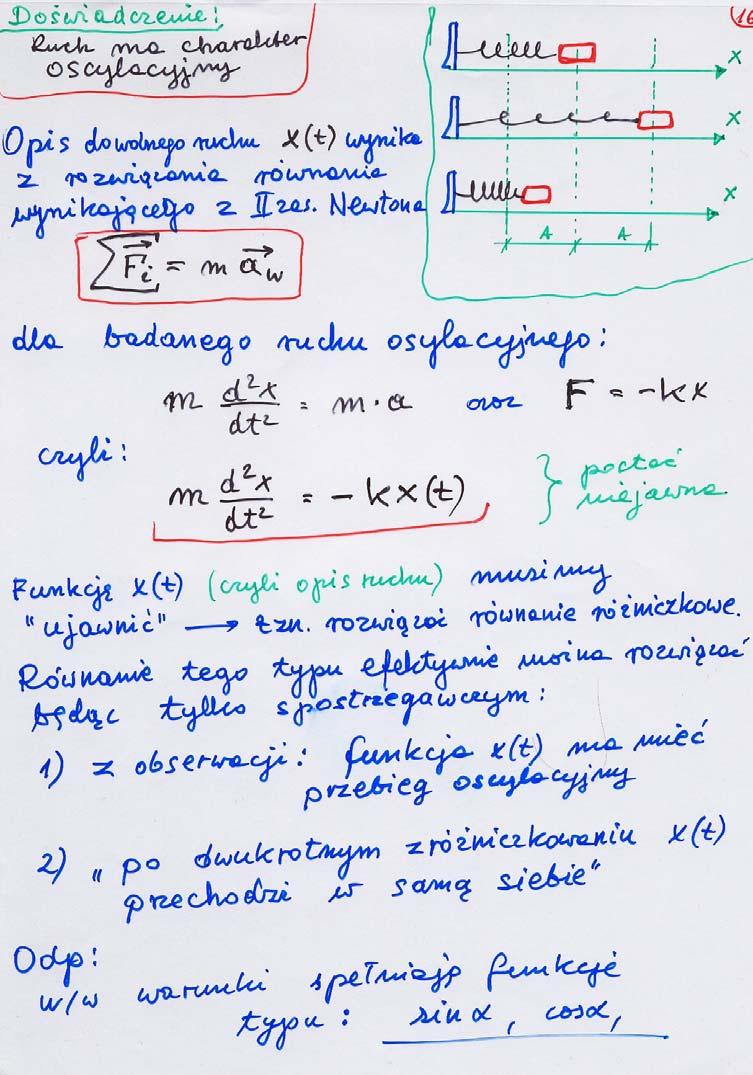 Doświadczenie:
16
Ruch ma charakter
oscylacyjny
x
x
x
A A
Opis dowolnego ruchu x(t) wynika
z rozwiązania równania
wynikającego z II zas. Newtona
∑F⃗i = m a⃗w
dla badanego ruchu osylacyjnego:
m d²x/dt² = m·a oraz F = -kx
czyli:
m d²x/dt² = - kx(t) } postać
niejawna
Funkcję x(t) (czyli opis ruchu) musimy
"ujawnić" → tzn. rozwiązać równanie różniczkowe.
Równanie tego typu efektywnie można rozwiązać
będąc tylko spostrzegawczym:
1) z obserwacji: funkcja x(t) ma mieć
przebieg oscylacyjny
2) „po dwukrotnym zróżniczkowaniu x(t)
przechodzi w samą siebie"
Odp:
w/w warunki spełniają funkcje
typu: sinα, cosα,